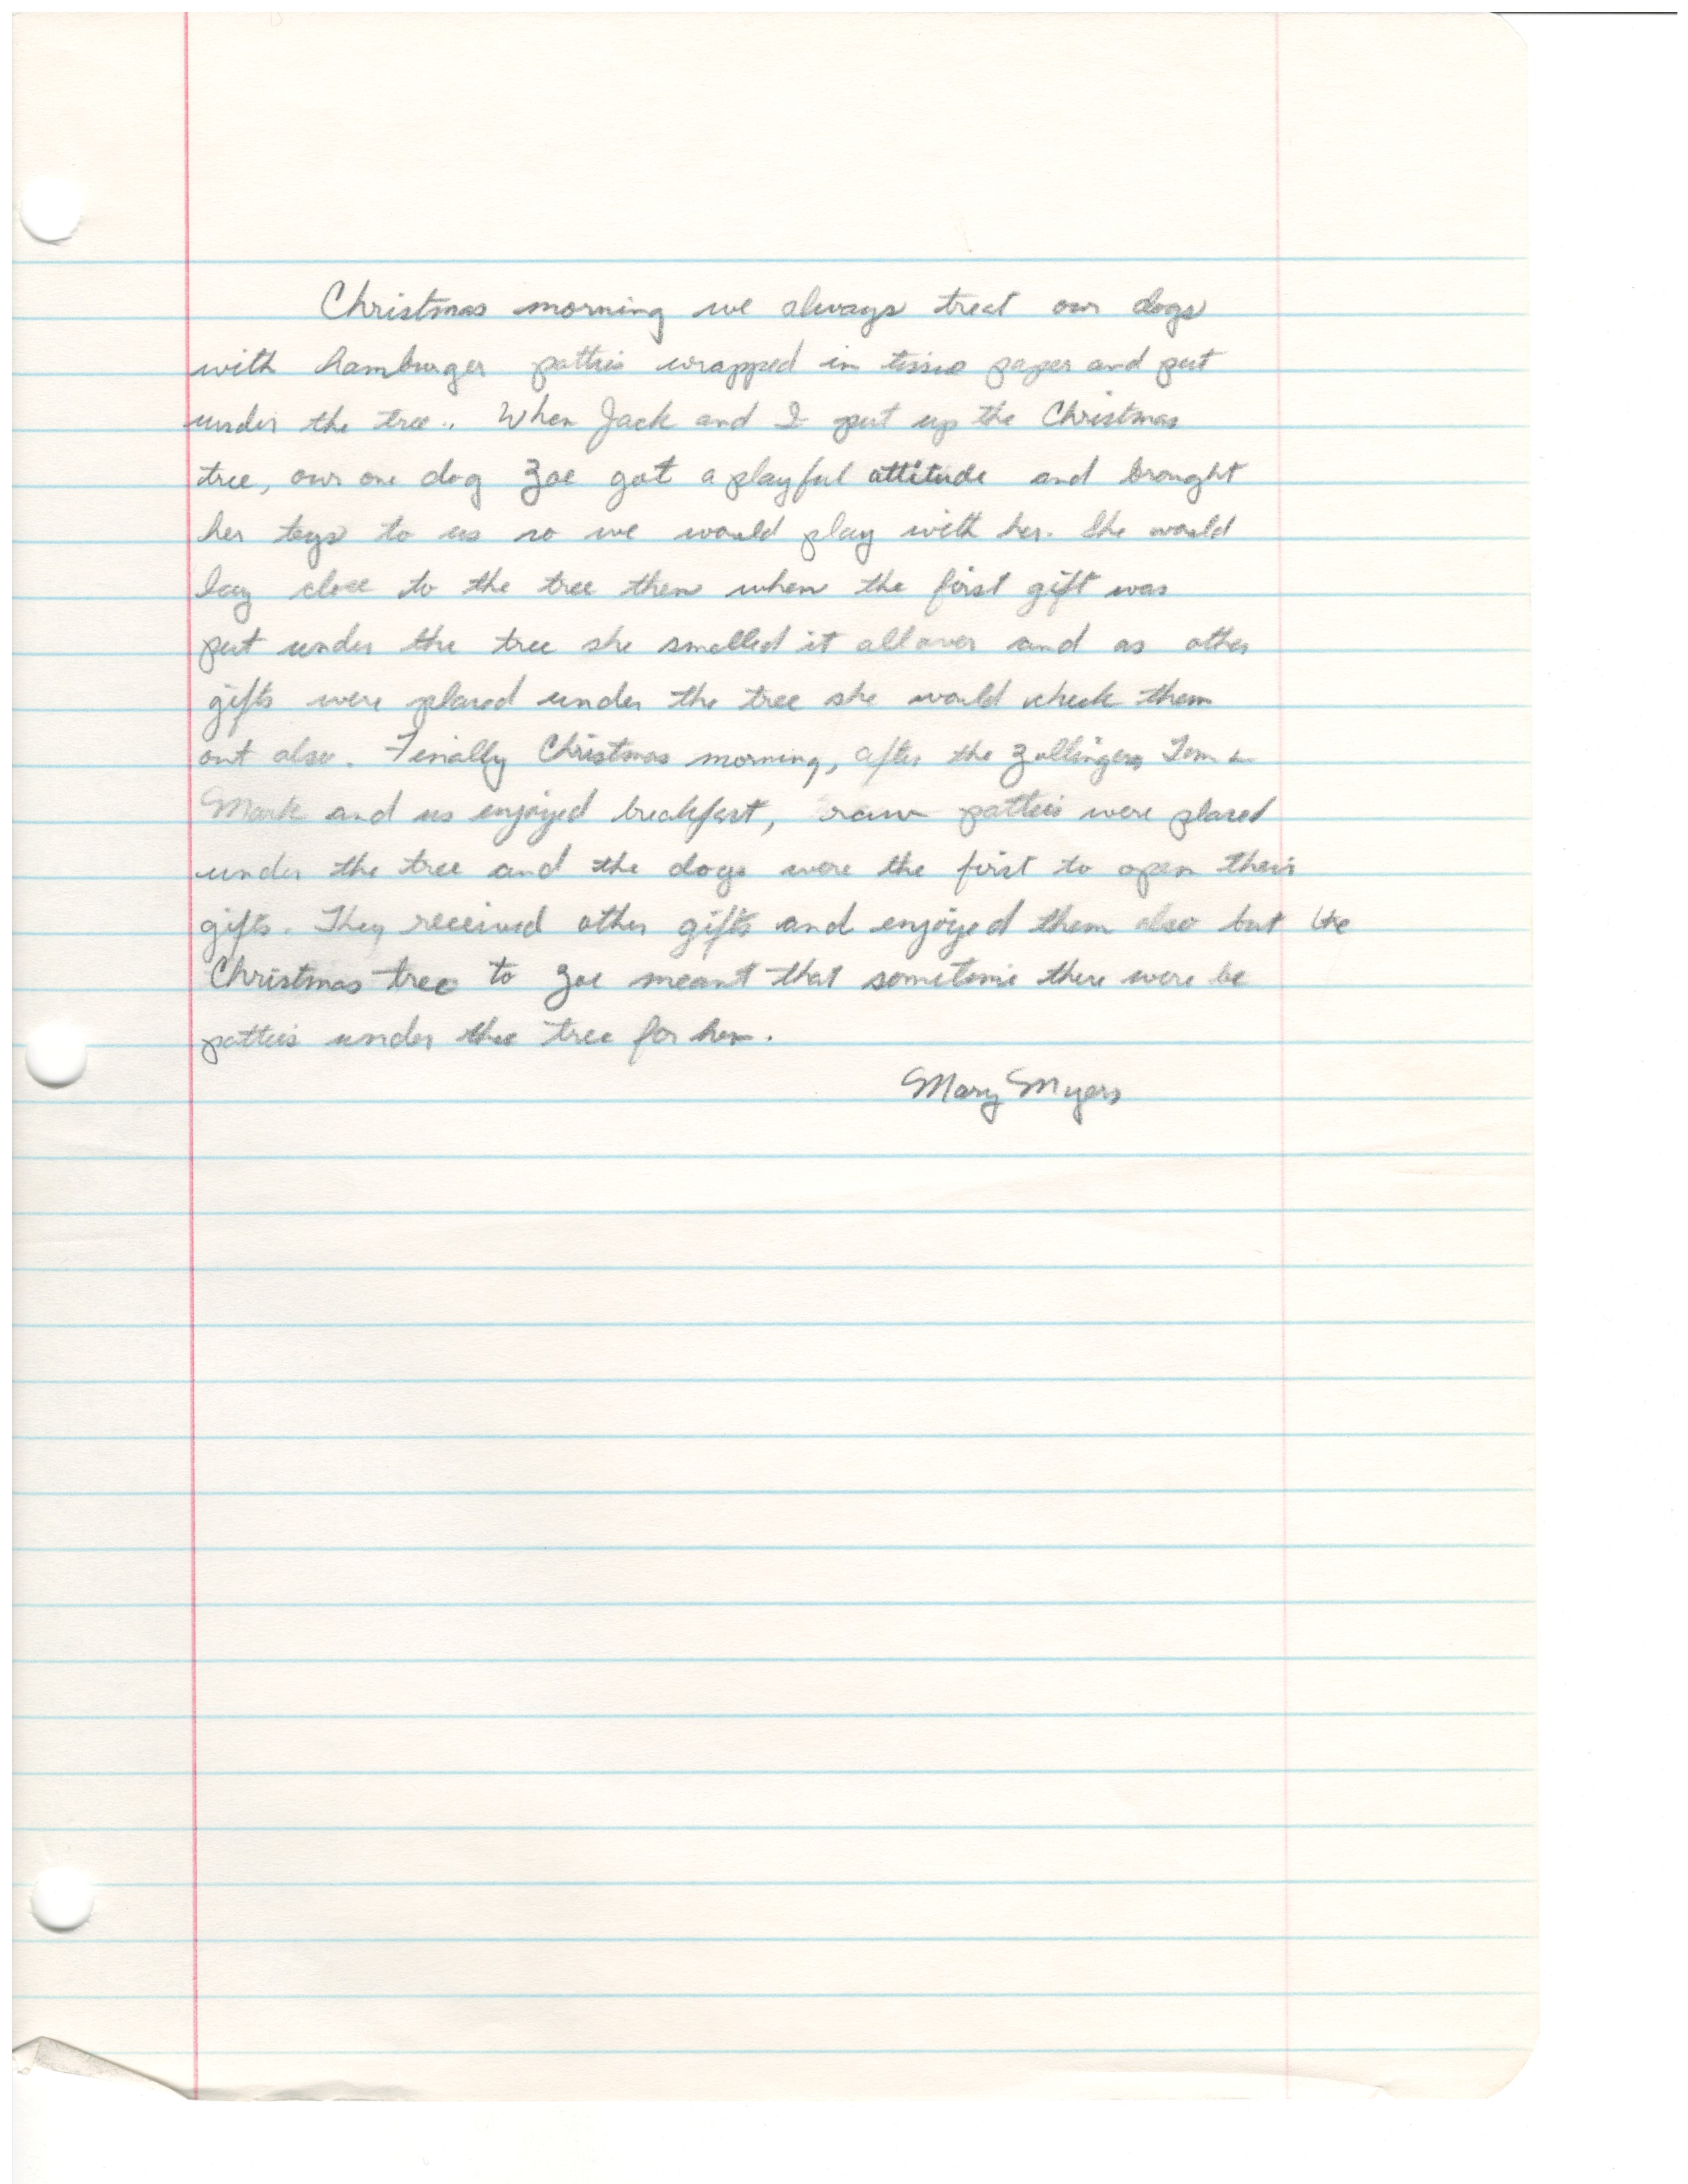 Christmas morning we always treat our dogs
with hamburger patties wrapped in tissue paper and put
under the tree.. When Jack and I put up the Christmas
tree, our one dog Zoe got a playful attitude and brought
her toys to us so we would play with her. She would
lay close to the tree then when the first gift was
put under the tree she smelled it all over and as other
gifts were placed under the tree she would check them
out also. Finally Christmas morning, after the Zollingers Tom &
Mark and us enjoyed breakfast, raw patties were placed
under the tree and the dogs were the first to open their
gifts. They received other gifts and enjoyed them also but the
Christmas tree to Zoe meant that sometime there were be
patties under the tree for her.
Mary Myers